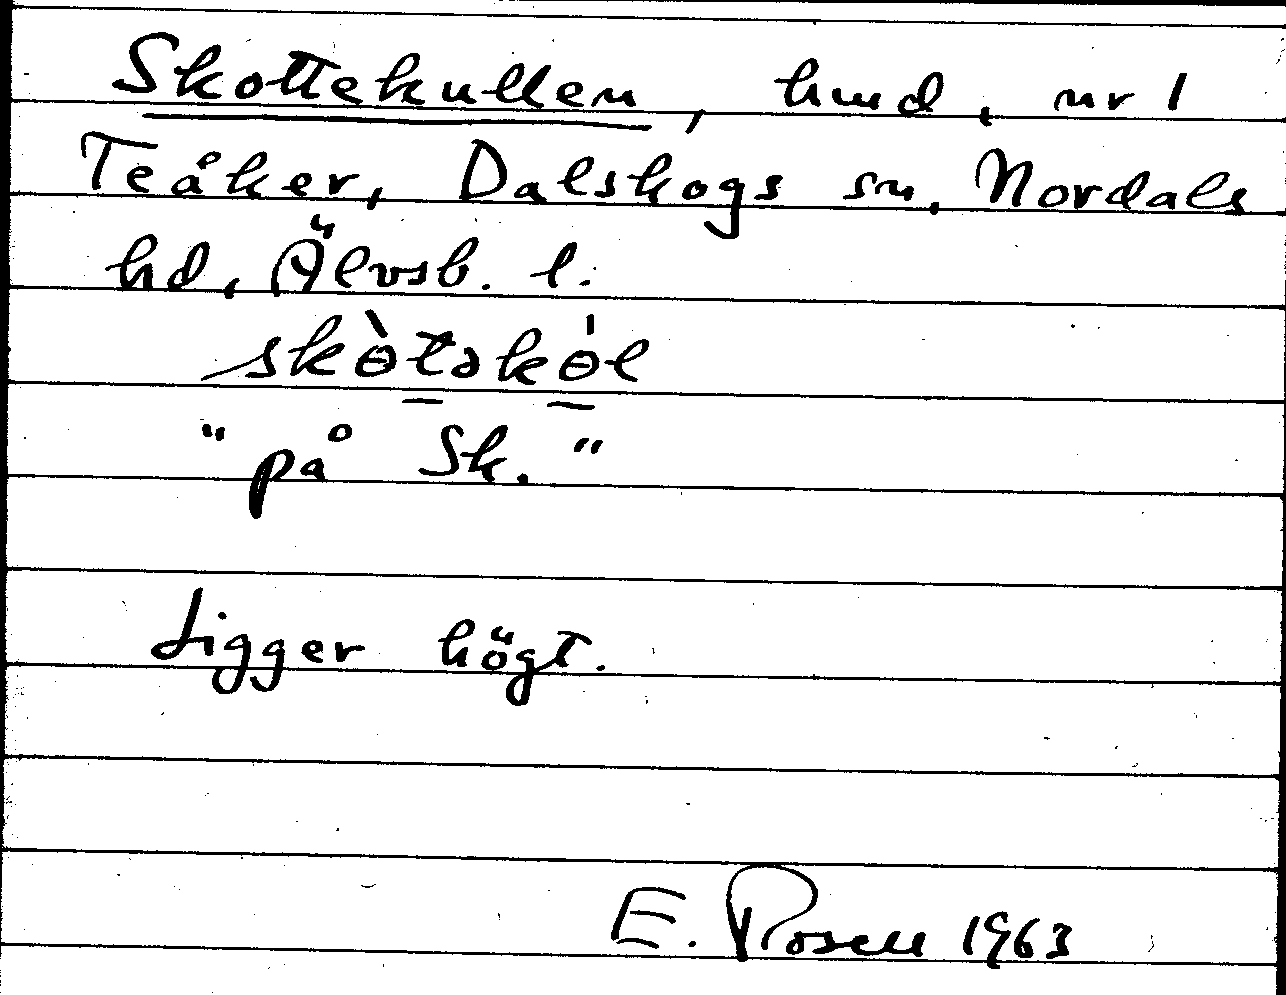 Skottekullen, hmd, nr 1
Teåker, Dalskogs sn, Nordals
hd, Älvsb. l.
skɵ̀təkɵ́l
"på Sk."
Ligger högt.
E. Rosell 1963